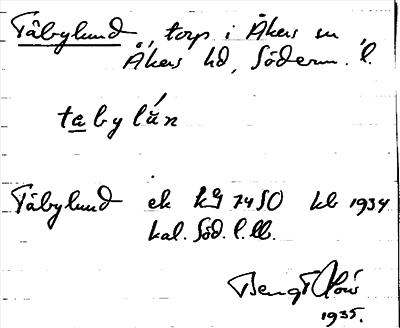 Täbylund, torp i Åkers sn,
Åkers hd, Söderm. l.
tabylún
Täbylund ek kg 7450 kb 1934
kal. Söd. l. lb.
Bengt
1935.